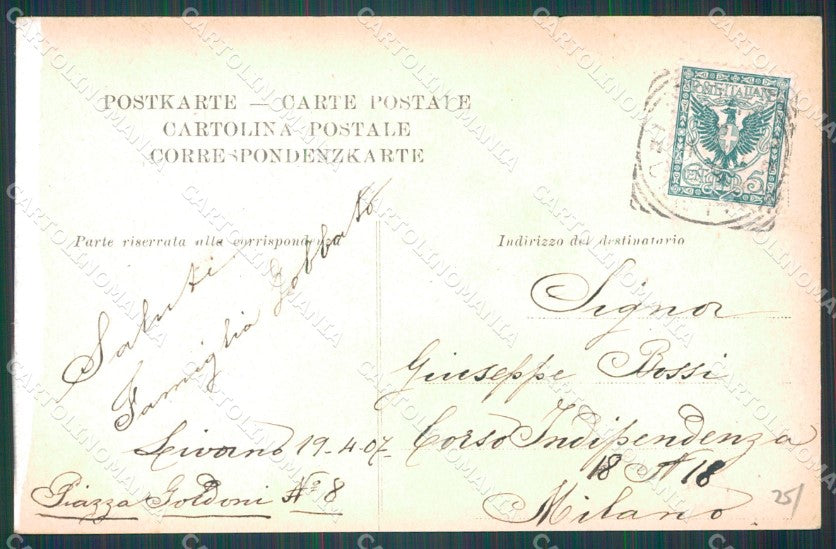 POSTKARTE — CARTE POSTALE
CARTOLINA POSTALE
CORRESPONDENZKARTE
POSTE ITALIANE
CENT. 5
Parte riserrata alla corrispondenza
Indirizzo del destinatario
Saluti
Famiglia Gobbato
Livorno 19-4-07
Piazza Goldoni No 8
Signor
Giuseppe Bossi
Corso Indipendenza
18 N 18
Milano
25/
CARTOLINOMANIA